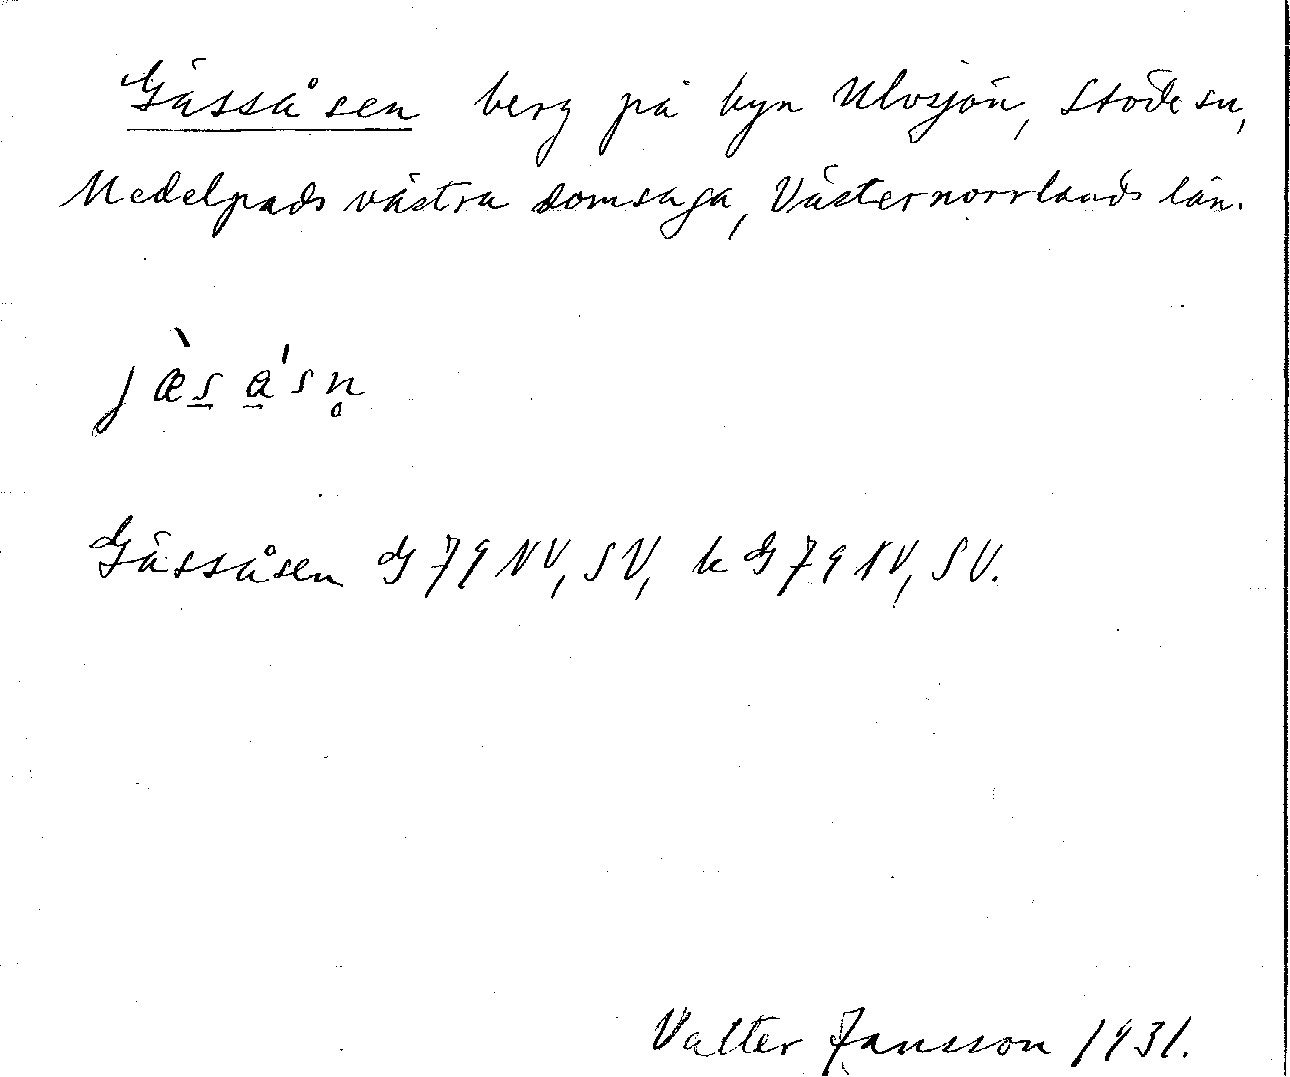 Gässåsen berg på byn Ulvsjön, Stöde sn,
Medelpads västra domsaga, Västernorrlands län.
jæ̀s̲ a̲'sn̥
Gässåsen G 79 NV, SV, k G 79 NV, SV.
Valter Jansson 1931.